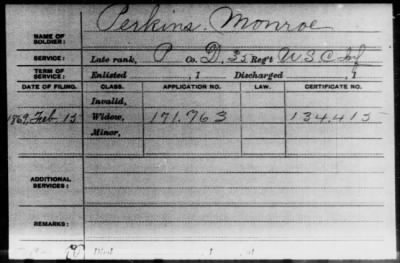 Perkins, Monroe
NAME OF SOLDIER:
SERVICE: Late rank, P Co. D, 35 Reg't U S C Inf
TERM OF SERVICE: Enlisted , 1 Discharged , 1
DATE OF FILING. CLASS. APPLICATION NO. LAW. CERTIFICATE NO.
Invalid,
1869, Feb 15 Widow, 171.763 134.415
Minor,
ADDITIONAL SERVICES:
REMARKS:
Died , 1 , at